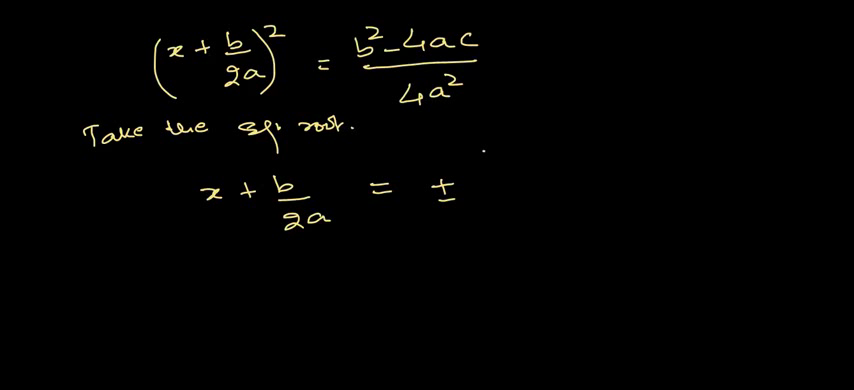 (x + b/2a)² = b² - 4ac / 4a²
Take the sq. root.
x + b/2a = ±